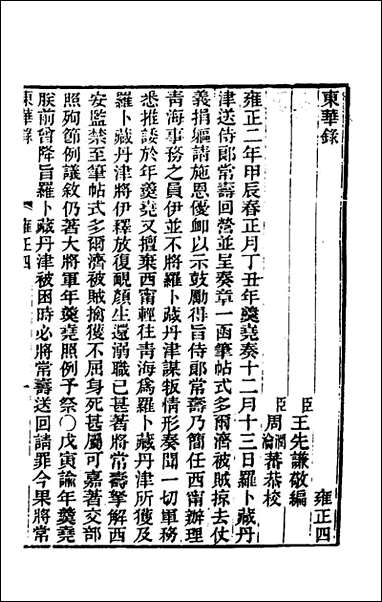 東華錄
雍正四
臣王先謙敬編
臣周潤蕃
瀹蕃恭校
雍正二年甲辰春正月丁丑年羹堯奏十二月十三日羅卜藏丹
津送侍郎常壽回營並呈奏章一函筆帖式多爾濟被賊掠去仗
義捐軀請施恩優卹以示鼓勵得旨侍郎常壽乃簡任西甯辦理
青海事務之員伊並不將羅卜藏丹津謀叛情形奏聞一切軍務
悉推諉於年羹堯又擅棄西甯輕往青海爲羅卜藏丹津所獲及
羅卜藏丹津將伊釋放復靦顏生還溺職已甚著將常壽拏解西
安監禁至筆帖式多爾濟被賊擒獲不屈身死甚屬可嘉著交部
照殉節例議敘仍著大將軍年羹堯照例予祭○戊寅諭年羹堯
朕前曾降旨羅卜藏丹津被困時必將常壽送回請罪今果將常
東華錄
雍正四
一